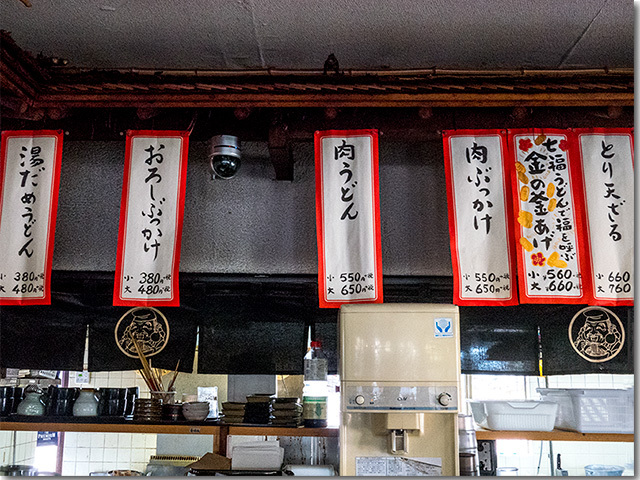 湯だめうどん
小 380円(税
大 480円(税
おろしぶっかけ
小 380円(税
大 480円(税
肉うどん
小 550円(税
大 650円(税
肉ぶっかけ
小 550円(税
大 650円(税
七福うどんで福を呼ぶ
金の釜あげ
小 560円
大 660円
とり天ざる
小 660
大 760